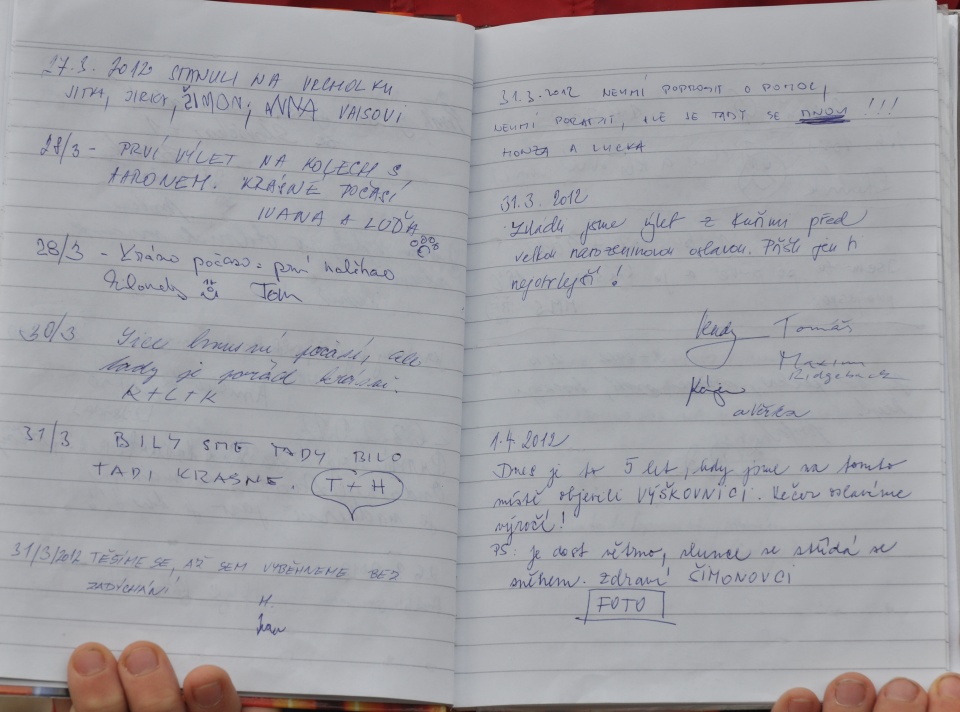 27.3. 2012 STANULI NA VRCHOLKU
JITKA, JIRKA, ŠIMON, ANNA VAISOVI
28/3 - PRVÍ VÝLET NA KOLECH S
AARONEM. KRÁSNÉ POČASÍ
IVANA A LOĎA
28/3 - Krásno počaso = první
Tom
30/3 Sice počasí, ale
tady je pořád krásně.
K+L+K
31/3 BILY SME TADY BILO
TADI KRASNE. T+H
31/3/2012 TĚŠÍME SE, AŽ SEM VYBĚHNEME BEZ
ZADÝCHÁNÍ
H.
31.3.2012 NEUMÍ POPROSIT O POMOC,
NEUMÍ PORADIT, ALE JE TADY SE MNOU !!!
HONZA A LUCKA
31.3.2012
Zvládli jsme výlet z Kuřimi před
velkou narozeninovou oslavou. Přišli jen ti
nejotrlejší!
Tomáš
Maxim
Ridgeback
Kája
a Věrka
1.4.2012
Dnes je to 5 let, kdy jsme na tomto
místě objevili VÝŠKOVNICI. Večer oslavíme
výročí!
PS: je dost větrno, slunce se střídá se
sněhem. Zdraví ŠIMONOVCI
FOTO